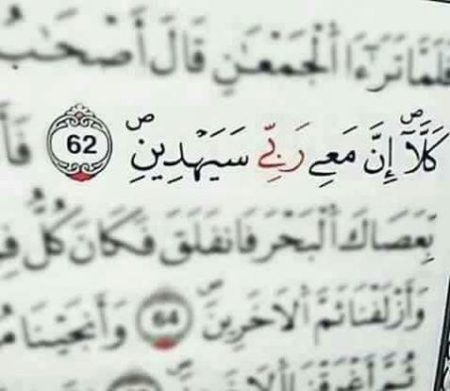 فَلَمَّا تَرَٰٓءَا ٱلْجَمْعَـٰنِ قَالَ أَصْحَـٰبُ
كَلَّآ ۖ إِنَّ مَعِے رَبِّے سَيَهْدِينِ ۖ 62 فَأَ
بِّعَصَاكَ ٱلْبَحْرَ فَانفَلَقَ فَكَانَ كُلُّ فِ
وَأَزْلَفْنَا ثَمَّ ٱلَاخَرِينَ 64 وَأَنجَيْنَا مُ
ثُمَّ أَغْرَقْنَا ٱلَاخَرِينَ